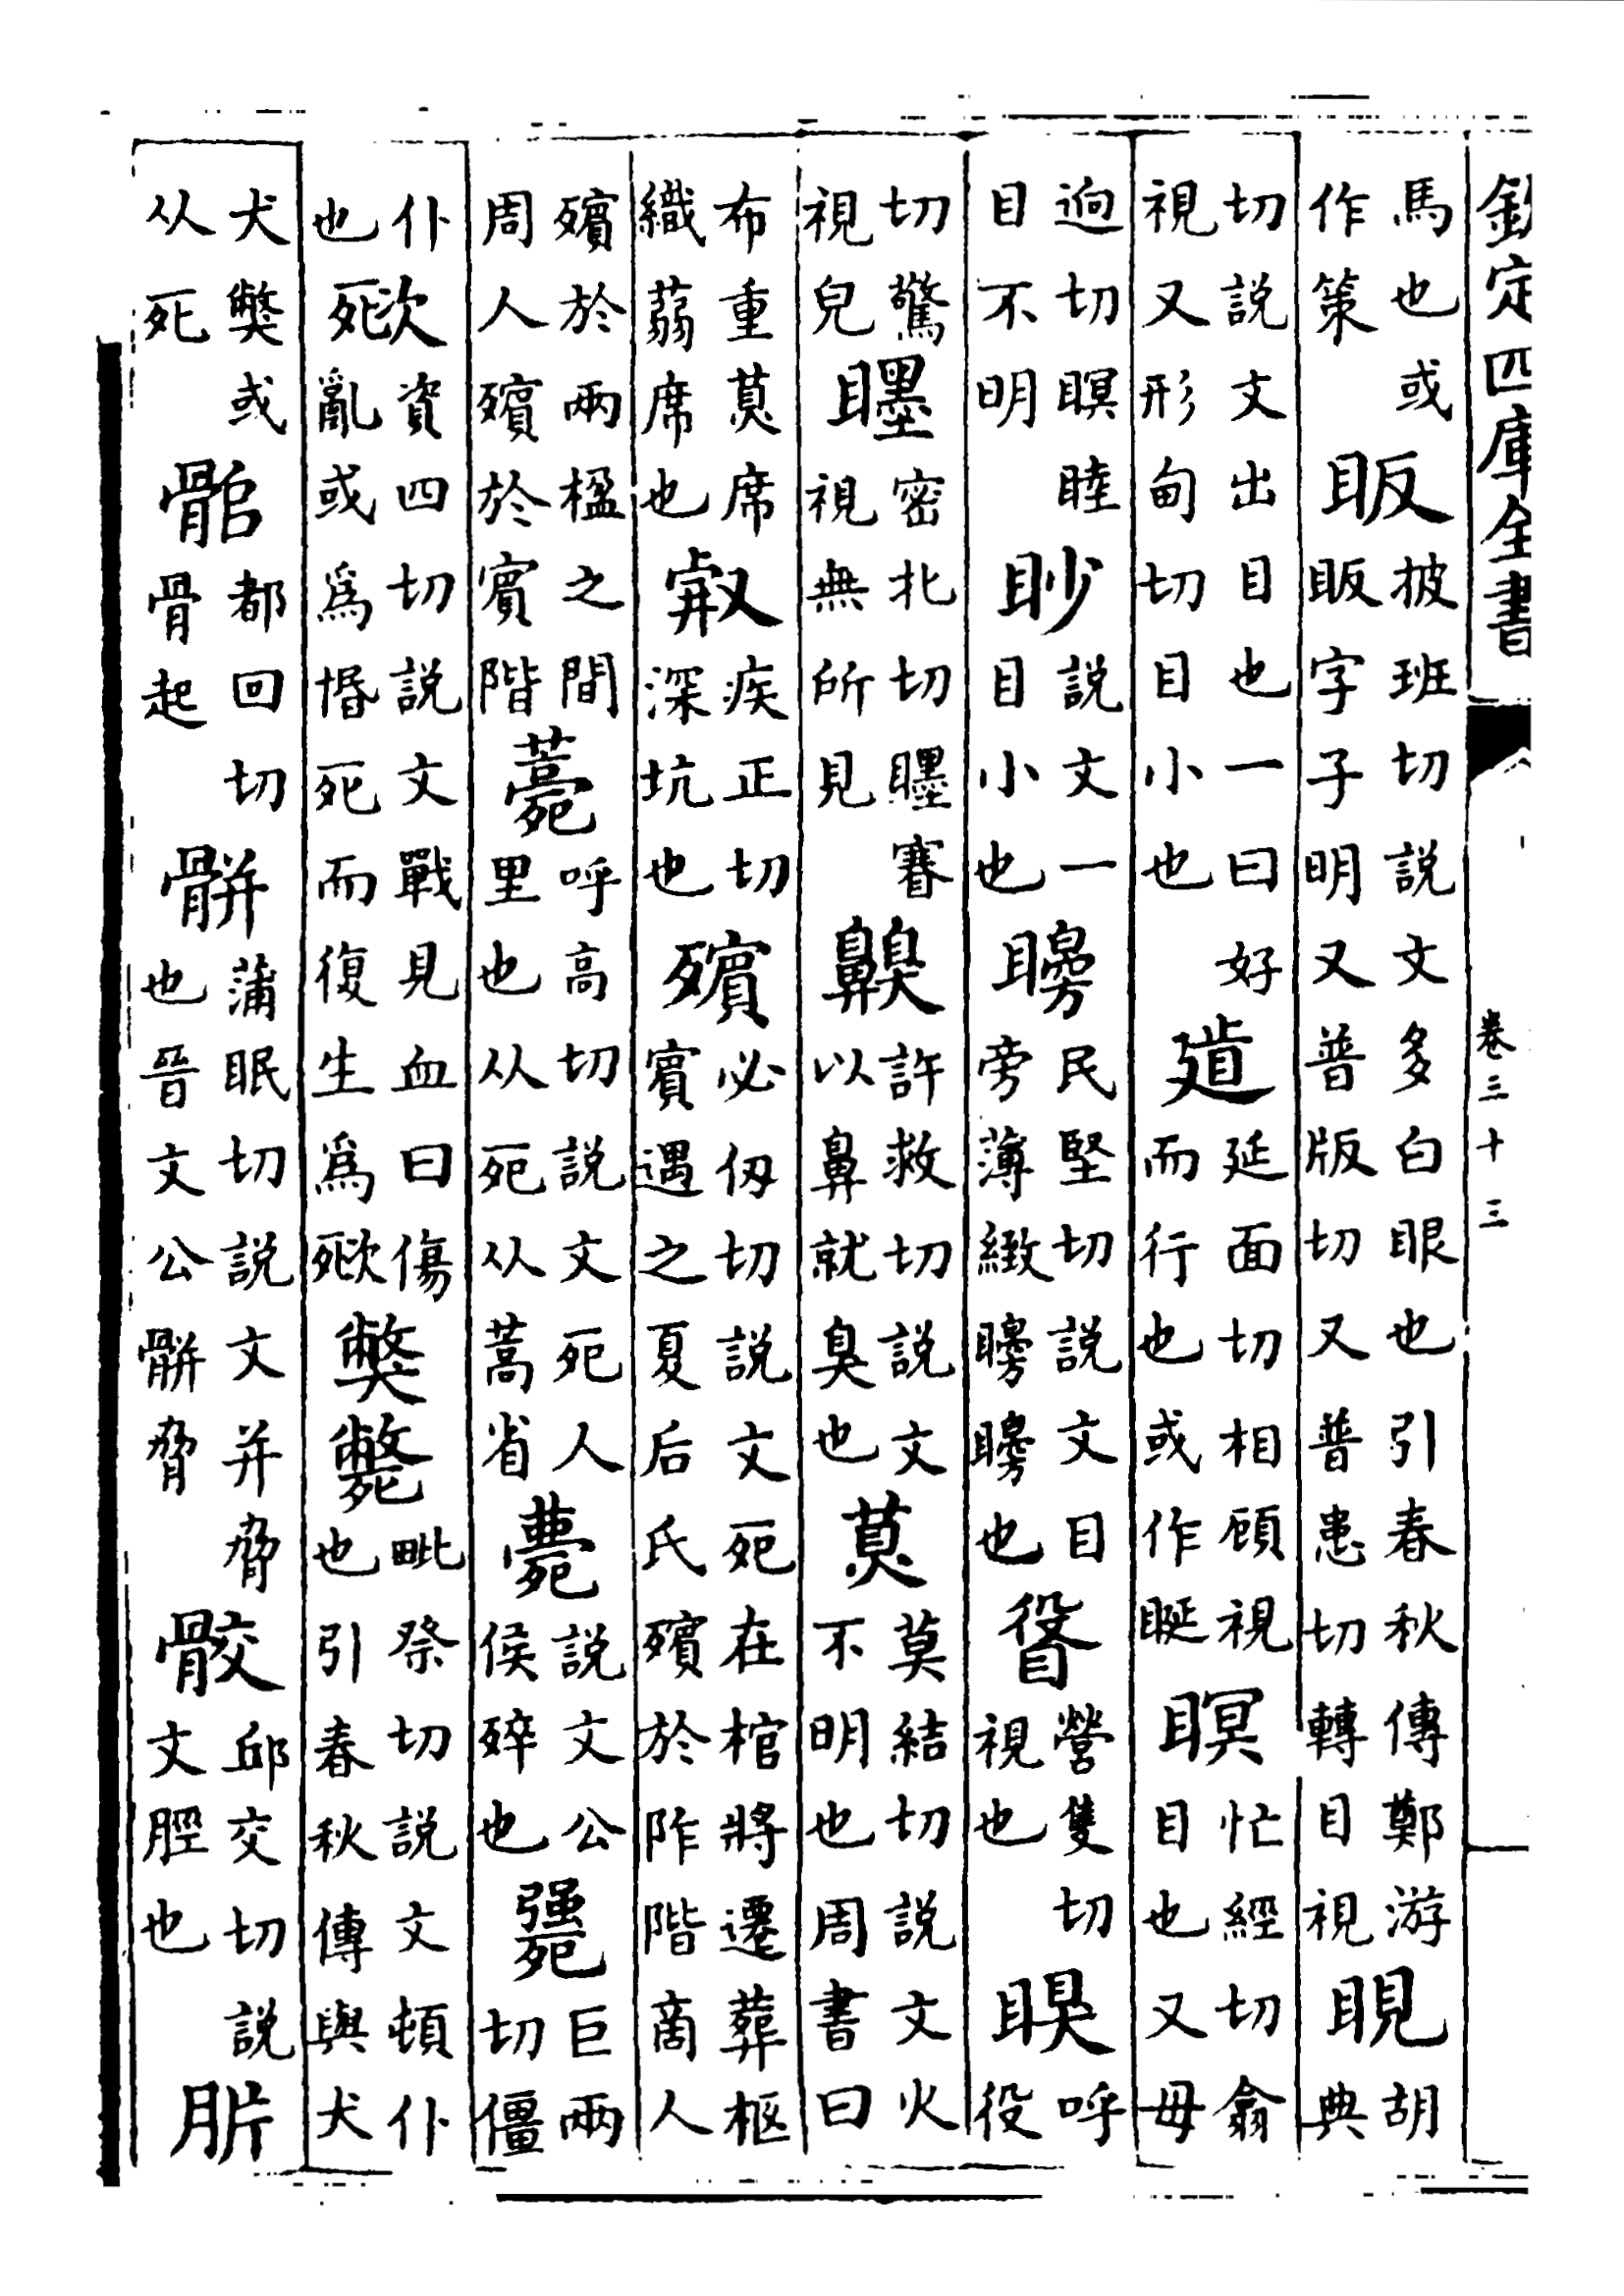 欽定四庫全書　卷三十三
馬也或作策眅披班切說文多白眼也引春秋傳鄭游眅字子明又普版切又普患切轉目視睍胡典
切說文出目也一曰好視又形甸切目小也延面切相顧視而行也或作瞑忙經切翕目也又毋
迥切瞑睦目不明眇說文一目小也矏民堅切說文目旁薄緻矏矏也營隻切視也瞁呼役
切驚視皃密北切視無所見齅許救切說文以鼻就臭也莫結切說文火不明也周書曰
布重席織蒻席也疾正切深坑也殯必仭切說文死在棺將遷葬柩賓遇之夏后氏殯於阼階商人
殯於兩楹之間周人殯於賓階薧呼高切說文死人里也从死从蒿省薨說文公侯也巨兩切僵
仆也資四切說文戰見血曰傷亂或爲惛死而復生爲獘斃毗祭切說文頓仆也引春秋傳與犬
犬獘或从死都回切骨起骿蒲眠切說文并脅也晉文公骿脅骹邱交切說文脛也